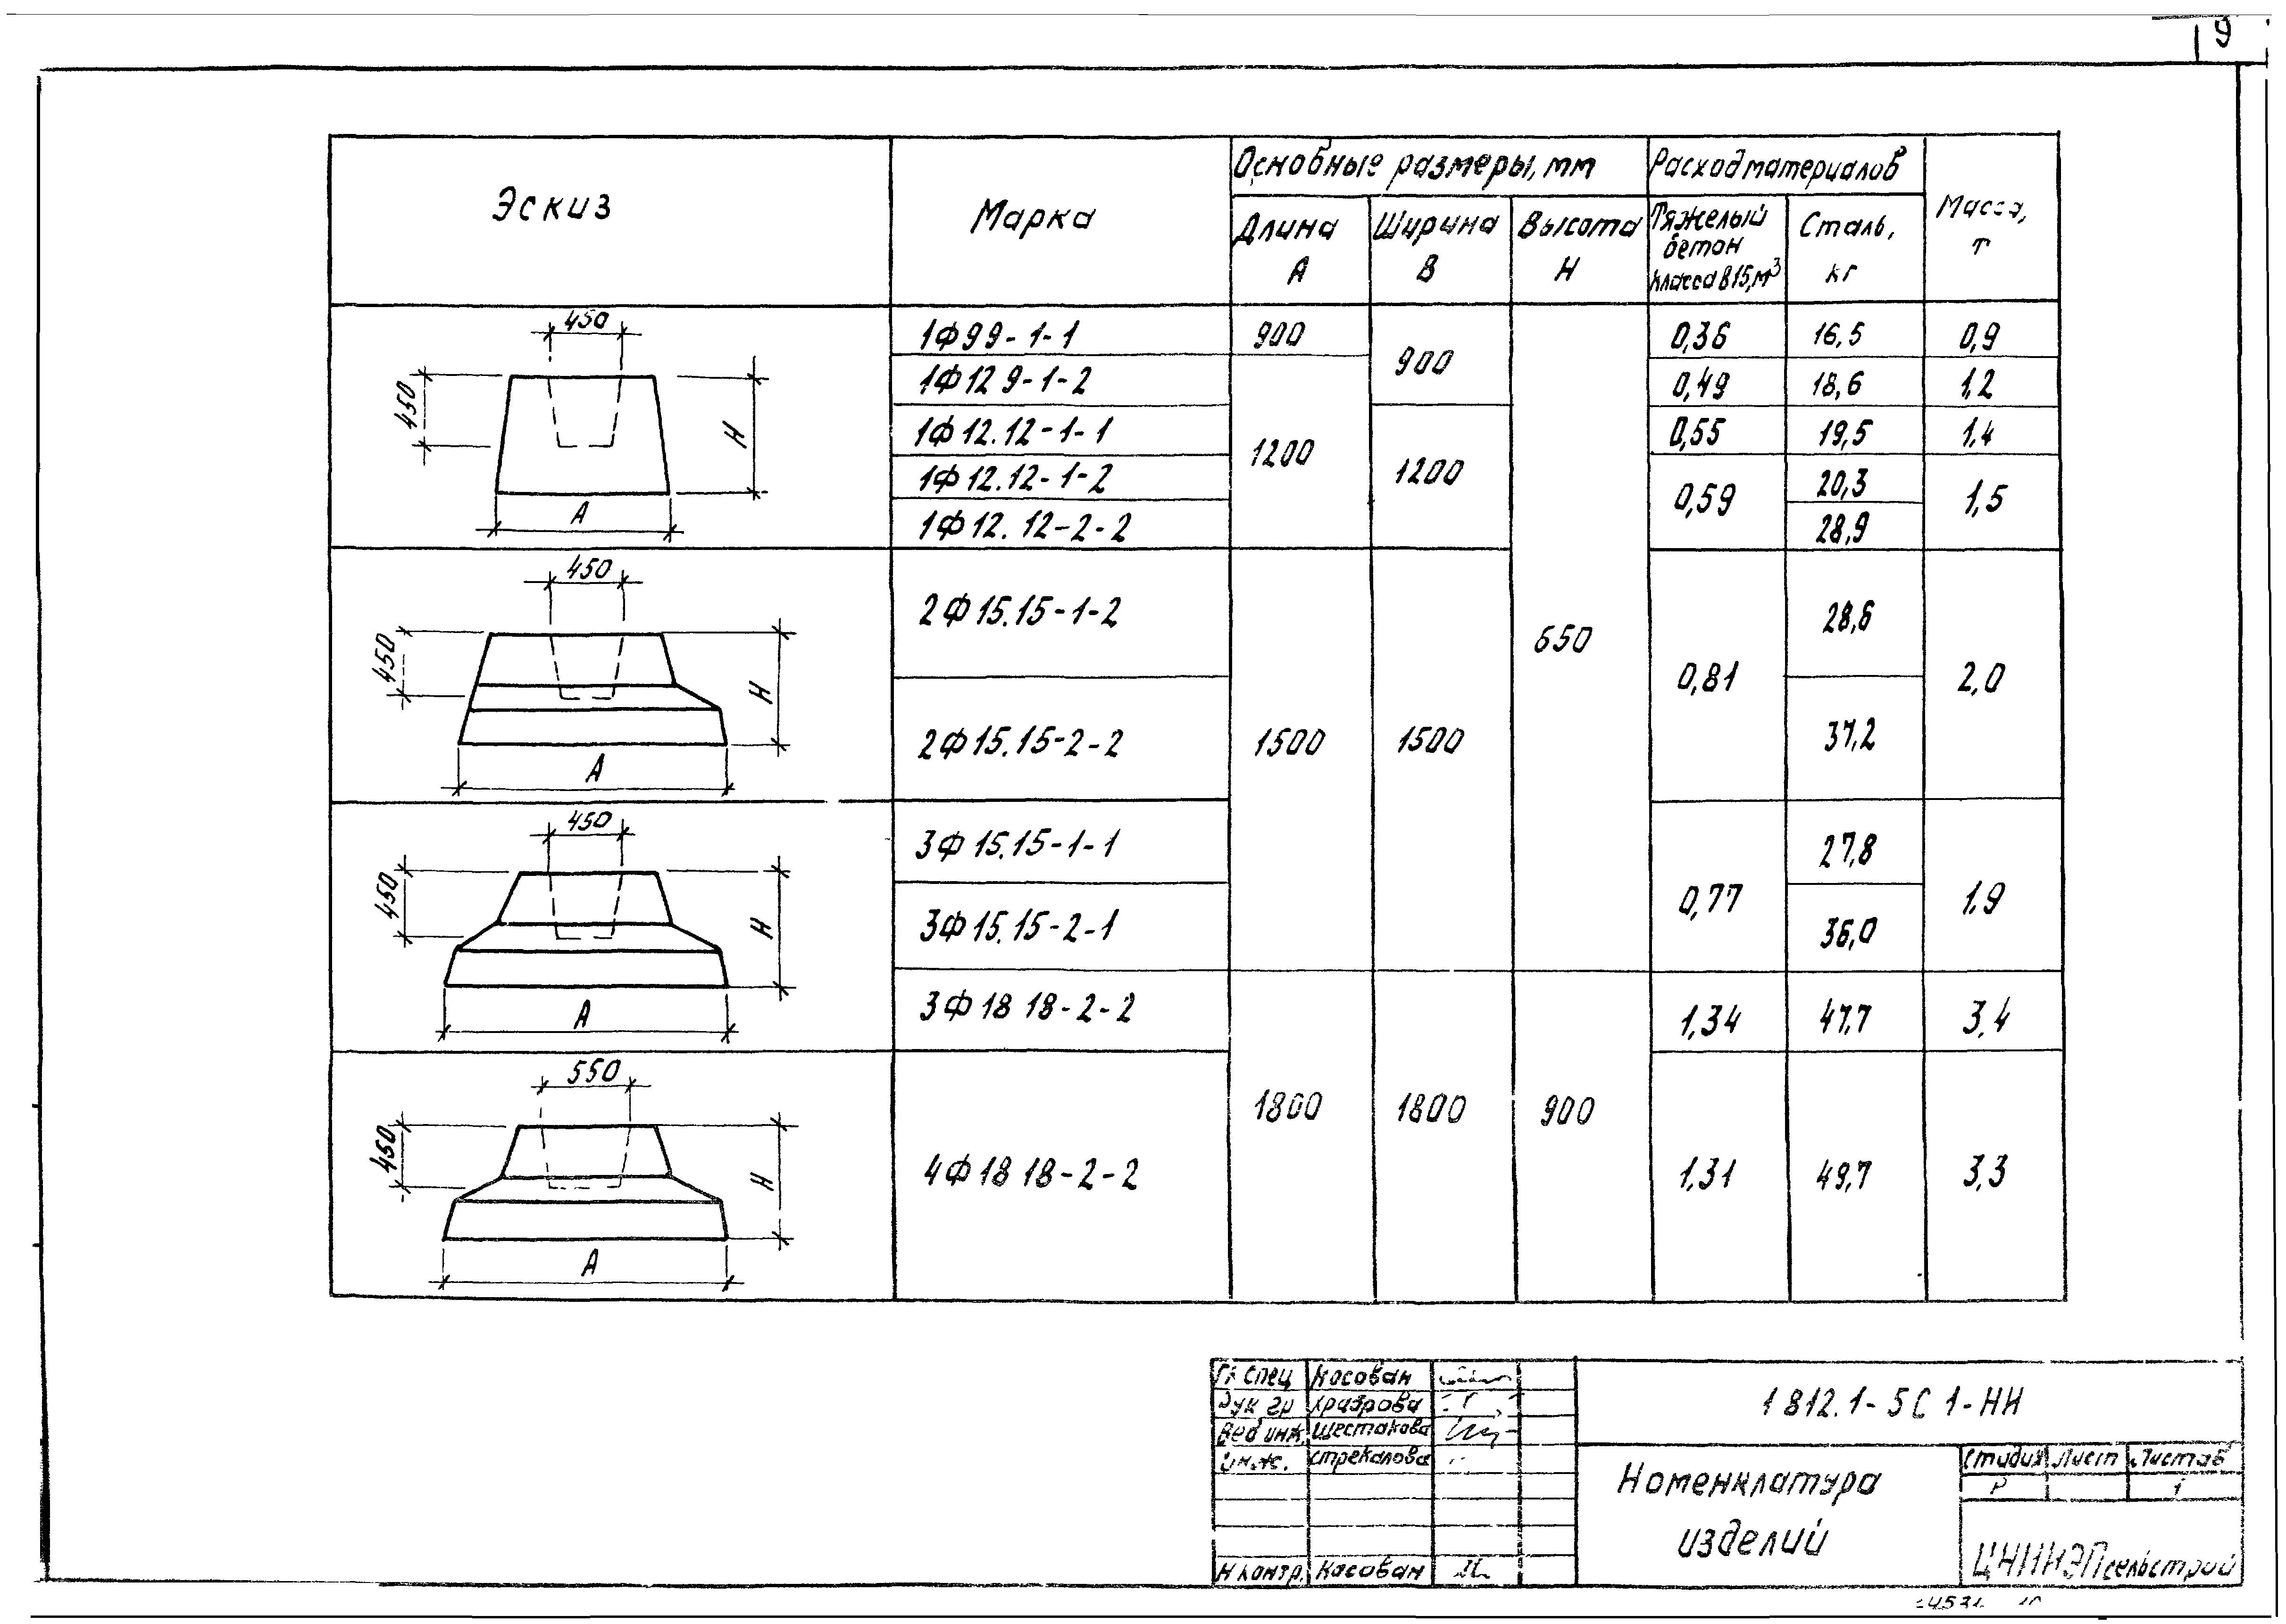 9
Эскиз
Марка
Основные размеры, мм
Расход материалов
Масса, т
Длина А
Ширина В
Высота Н
Тяжелый бетон класса В15, м³
Сталь, кг
450
450
Н
А
1Ф 9 9-1-1
900
900
0,36
16,5
0,9
1Ф 12 9-1-2
1200
0,49
18,6
1,2
1Ф 12.12-1-1
1200
0,55
19,5
1,4
1Ф 12.12-1-2
0,59
20,3
1,5
1Ф 12.12-2-2
28,9
450
450
Н
А
2Ф 15.15-1-2
650
28,6
0,81
2,0
2Ф 15.15-2-2
1500
1500
37,2
450
450
Н
А
3Ф 15.15-1-1
27,8
0,77
1,9
3Ф 15.15-2-1
36,0
3Ф 18 18-2-2
1,34
47,7
3,4
550
450
Н
А
1800
1800
900
4Ф 18 18-2-2
1,31
49,7
3,3
Гл спец Косован
Рук гр Храброва
Вед инж. Шестакова
Инж. Стрекалова
Н контр. Косован
1 812.1-5С 1-НИ
Номенклатура изделий
Стадия Лист Листов
Р 1
ЦНИИЭПсельстрой